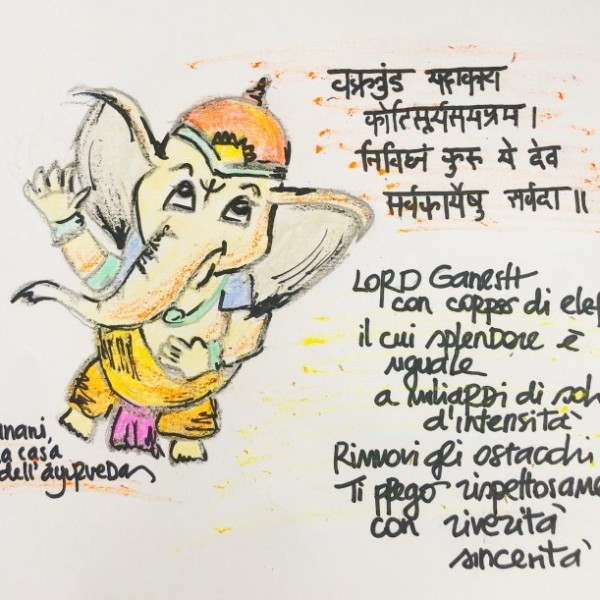 वक्रतुंड महाकाय
कोटिसूर्यसमप्रभ।
निर्विघ्नं कुरु मे देव
सर्वकार्येषु सर्वदा॥
LORD GanesH
con corpo di elef
il cui splendore è
uguale
a miliardi di sol
d'intensità
Rimuovi gli ostacchi
Ti prego rispettosame
con riverità
sincerità
nani,
a casa
dell'ayurveda